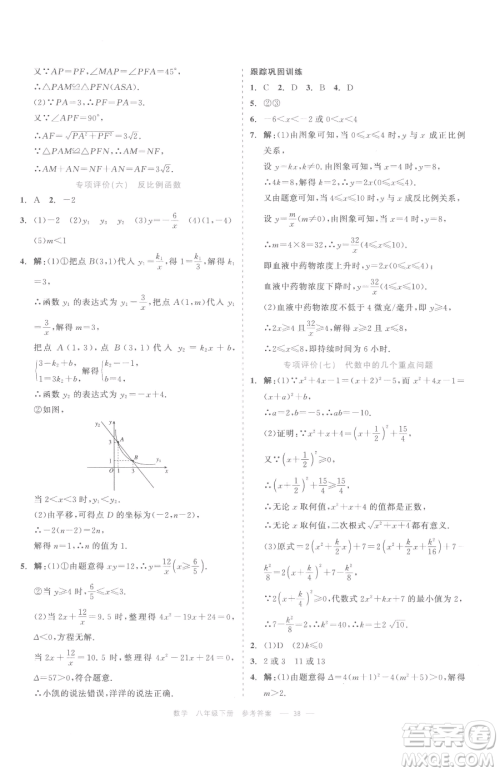 又∵AP=PF,∠MAP=∠PFN=45°,
∴△PAM≌△PFN(ASA).
(2)∵△PAM≌△PFN,
∴AM=FN,
又∵AP=PF,
∠APF=90°,
∴AF=√PA²+PF²=3√2.
∵△PAM≌△PFN,
∴AM+AN=FN+AN=AF=3√2.
专项评价(六) 反比例函数
1. A 2. -2
3. (1)-2 (2)y₁ y₂ (3)y=-6/x (4)y₁<y₂
(5)m<1
4. 解:(1)①把点 B(3,1)代入 y₁=k₁/x,得 1=k₁/3,
∴k₁=3,
∴函数 y₁ 的表达式为 y₁=3/x,
把点 A(1,m)代入 y₁=3/x,解得 m=3,
把点 A(1,3)、点 B(3,1)代入 y₂=k₂x+b,得
{3=k₂+b, 1=3k₂+b, 解得{k₂=-1, b=4.
∴函数 y₂ 的表达式为 y₂=-x+4.
②如图,
当 2<x<3 时,y₁<y₂.
(2)由平移,可得点 D 坐标为(-2,n-2),
∴-2(n-2)=2n,
解得 n=1,∴n 的值为 1.
5. 解:(1)①由题意得 xy=12,∴y=12/x(x≥6/5)
②当 y≥4 时,6/5≤x≤3.
(2)当 2x+12/x=9.5 时,整理得 4x²-19x+24=0,
Δ<0,方程无解.
当 2x+12/x=10.5 时,整理得 4x²-21x+24=0,
Δ=57>0,符合题意.
∴小凯的说法错误,小洋的说法正确.
跟踪巩固训练
1. C 2. D 3. B 4. D
5. ②③
6. -6<x<-2 或 x>0
7. 解:(1)由图象可知,当 0≤x≤4 时,y 与 x 成正比例
关系,设 y=kx.
由图象可知,当 x=4 时,y=8,
∴4k=8,解得 k=2,∴y=2x(0≤x≤4).
又由题意可知,当 4≤x≤10 时,y 与 x 成反比例关系,
设 y=m/x.由图象可知,当 x=4 时,y=8,
∴m=4×8=32,∴y=32/x(4≤x≤10).
即血液中药物浓度上升时,y=2x(0≤x≤4);
血液中药物浓度下降时,y=32/x(4≤x≤10).
(2)血液中药物浓度不低于 4 微克/毫升,即 y≥4,
∴2x≥4 且 32/x≥4,解得 x≥2 且 x≤8.
专项评价(七) 代数中的几个重点问题
1. 解:(1)∵x²+4x-1=0,∴x²+4x=1,
∴(x²+4x)²+2(x²+4x)-3=1²+2×1-3=0.
(2)∵x²+x+4=(x+1/2)²+15/4,
又∵(x+1/2)²≥0,
∴(x+1/2)²+15/4≥15/4,
∴x²+x+4≥15/4,
∴无论 x 取何值,x²+x+4 的值都是正数,
∴无论 x 取何值,二次根式√x²+x+4都有意义.
(3)原式=2(x²+k/2x+k²/16)+7-k²/8=2(x+k/4)²+7-
k²/8,∵2(x+k/4)²≥0,∴代数式 2x²+kx+7 的最小
值为 7-k²/8,∴7-k²/8=2,∴k=±2√10.
2. (1)①② (2)k≤0
3. 2 或 3 11 或 13
4. 解:(1)∵(x²+y²-4)(x²+y²+2)=7,
∴(x²+y²)²-2(x²+y²)-15=0,
∴(x²+y²-5)(x²+y²+3)=0,
∴x²+y²-5=0 或 x²+y²+3=0.
数学 八年级下册 参考答案 — 38 —